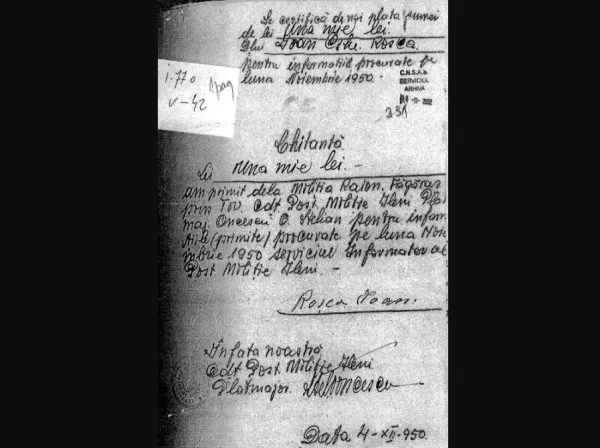 Se certifică de noi plata sumei
de lei Una mie lei.
Dlui Ioan Gh. Rosca
pentru informatiile procurate pe
luna Noiembrie 1950.-
C.N.S.A.S.
SERVICIUL
ARHIVA
-11- 2002
231
i-770
v-42
Chitantă
Lei Una mie lei.-
am primit dela Militia Raion. Făgăras
prin Tov. Cdt Post. Militie Ileni Plot
maj. Oncescu O. Stelian pentru infor
atiile (primite) procurate pe luna Noie
mbrie 1950 serviciul Informator al
Post Militie Ileni.-
Rosca Ioan.
În fata noastră
Cdt Post. Militie Ileni
Plotmajor.
Data 4-XII-950